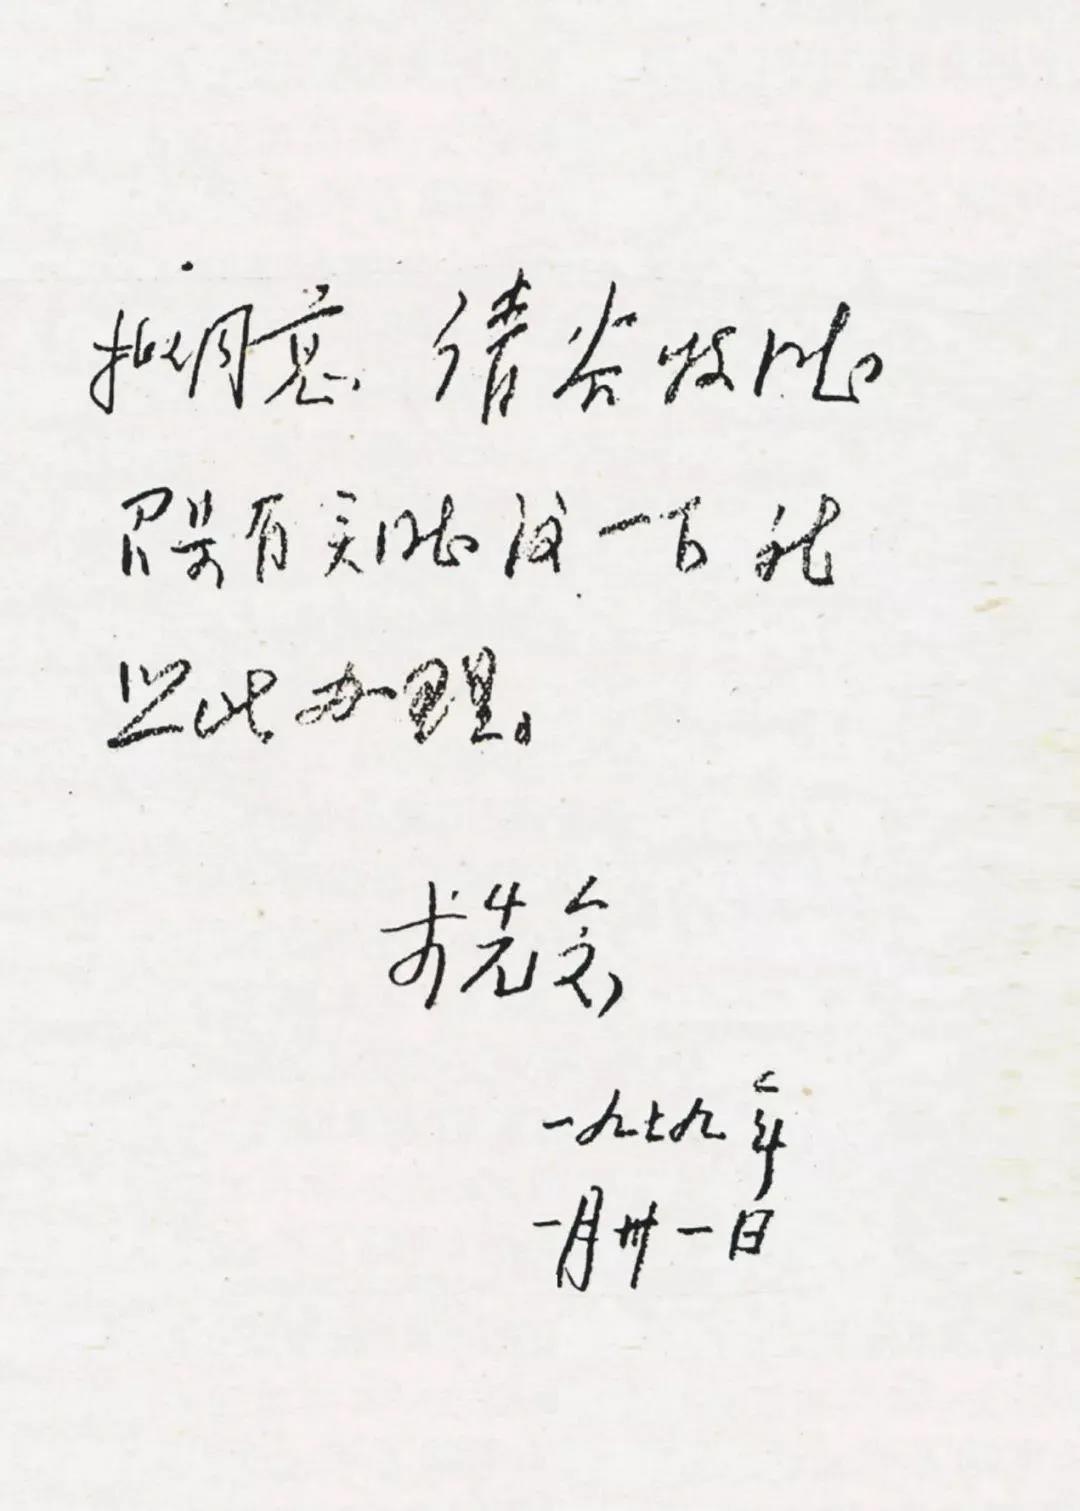 拟同意 请谷牧同志
召集有关同志议一下，就
照此办理。
李先念
一九七九年
一月卅一日